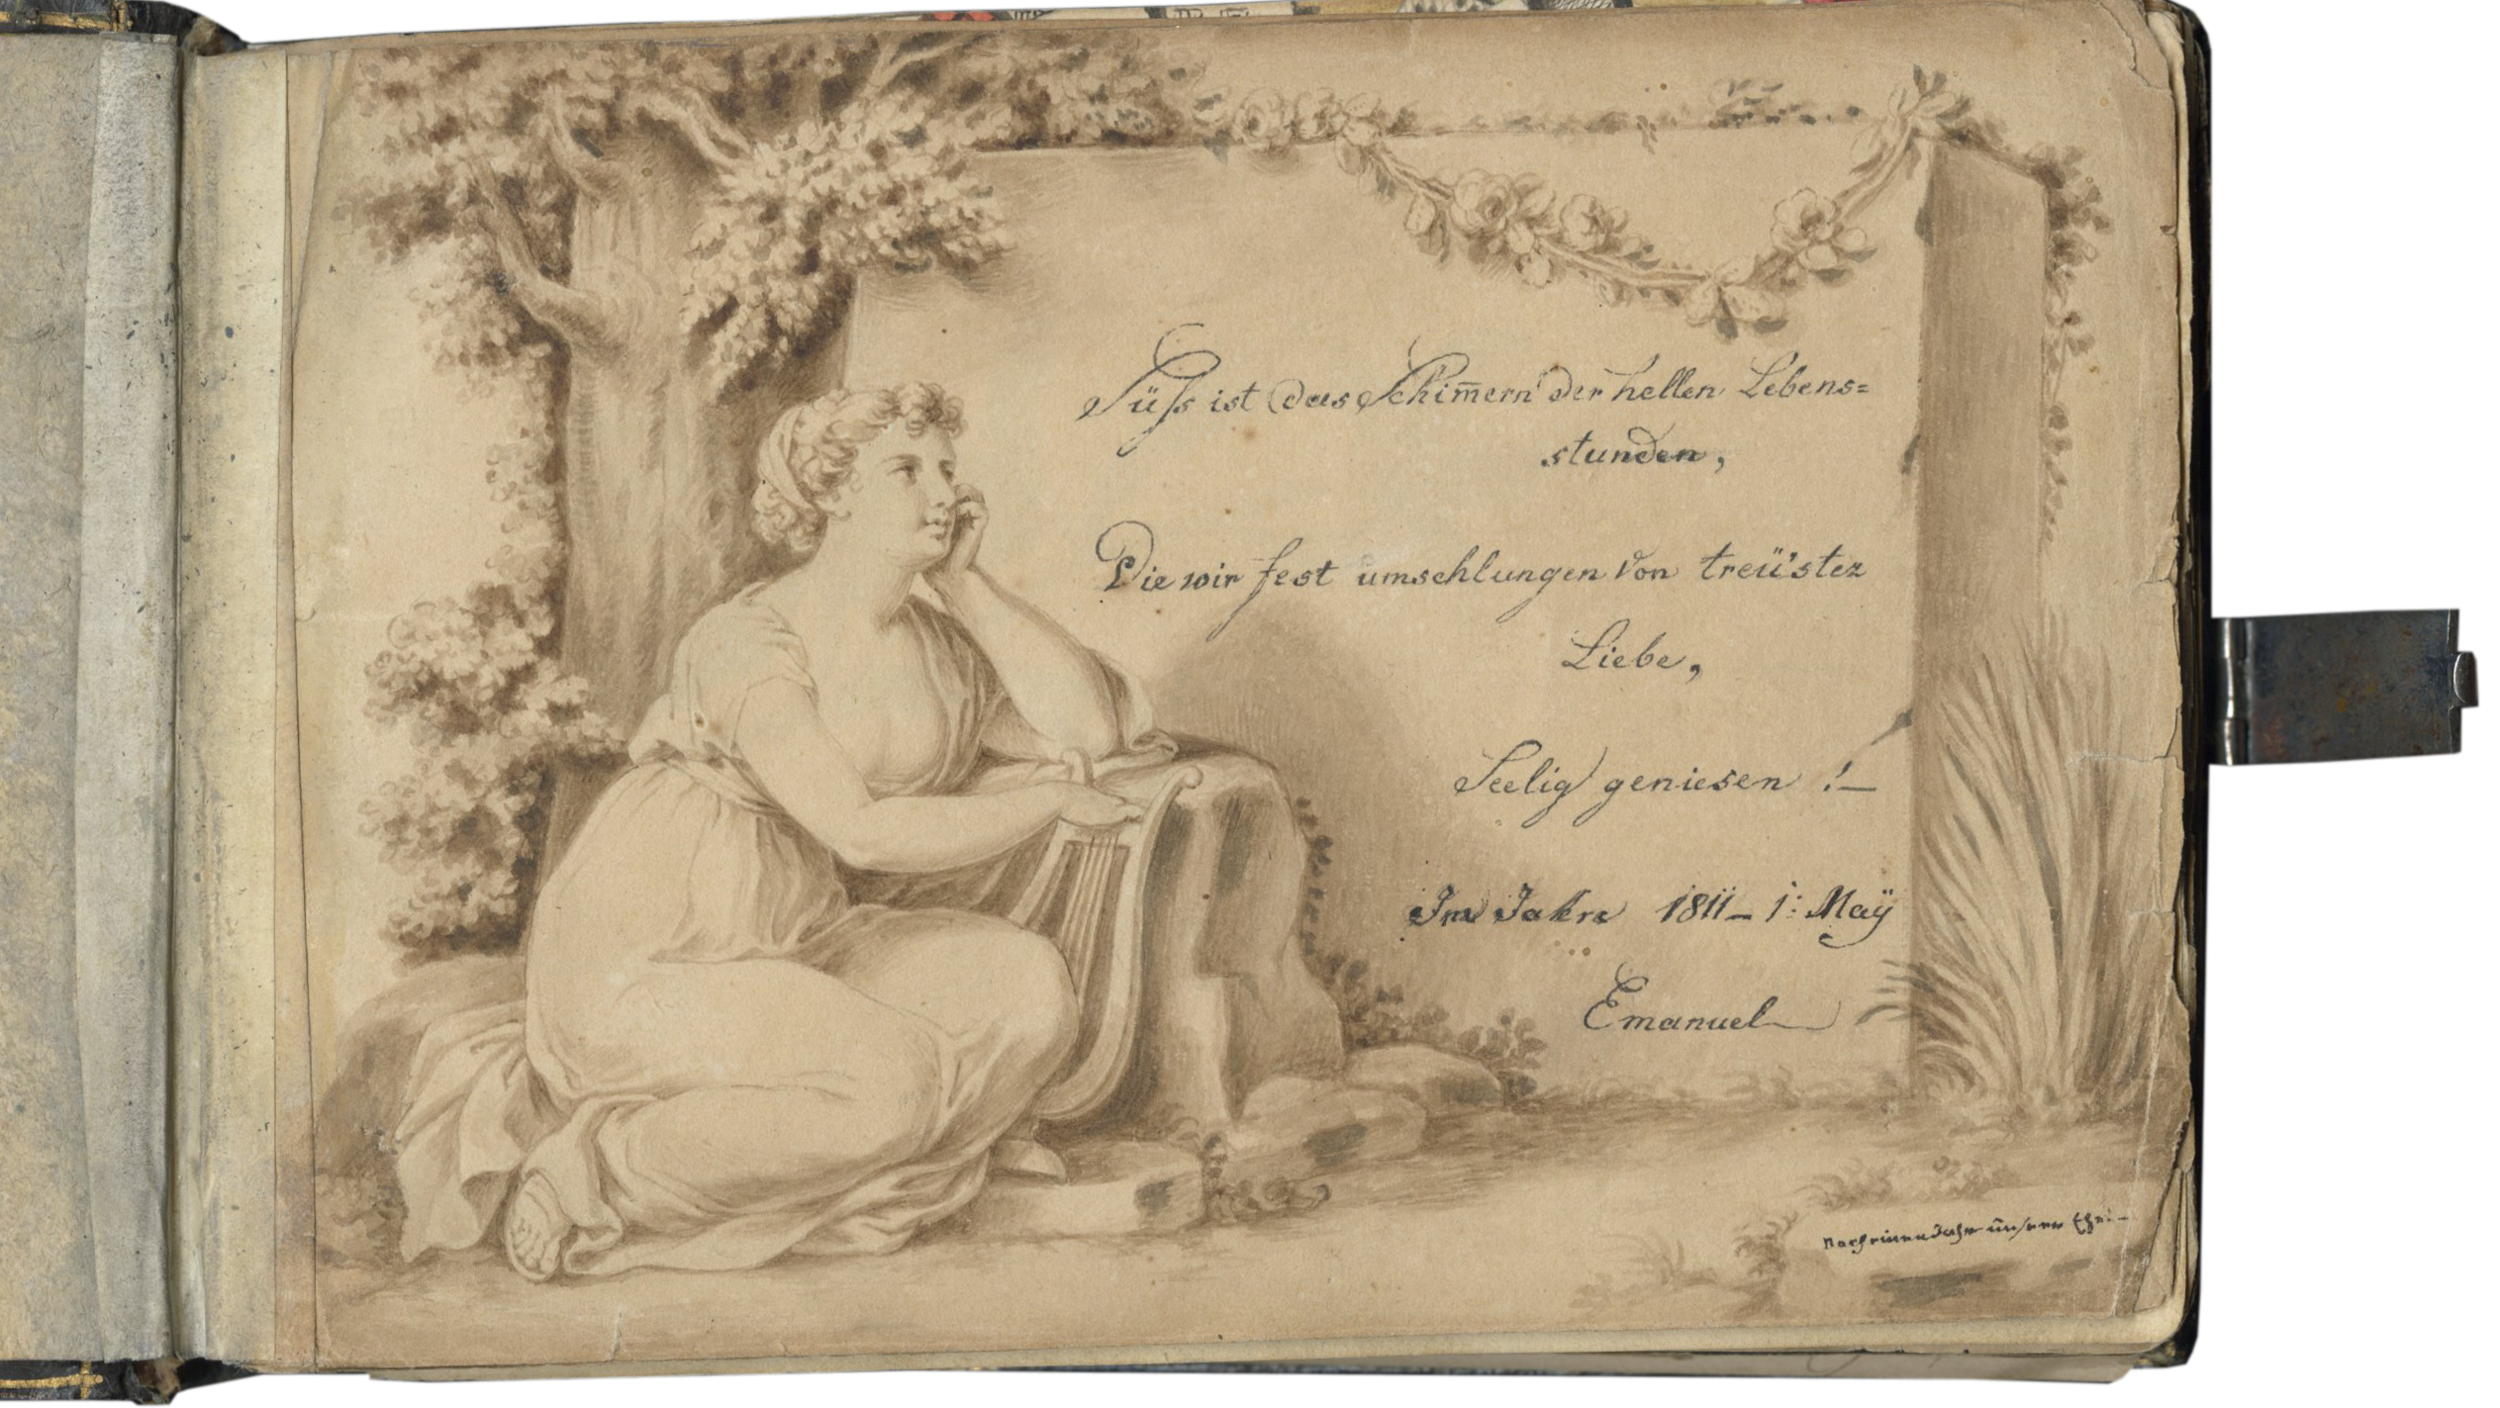 Süſs ist das Schim̅ern der hellen Lebens=
stunden,
Die wir fest umschlungen von treü'ster
Liebe,
Seelig geniesen !—
Im Jahre 1811— 1: Maÿ
Emanuel
Nach einem Jahr unserer